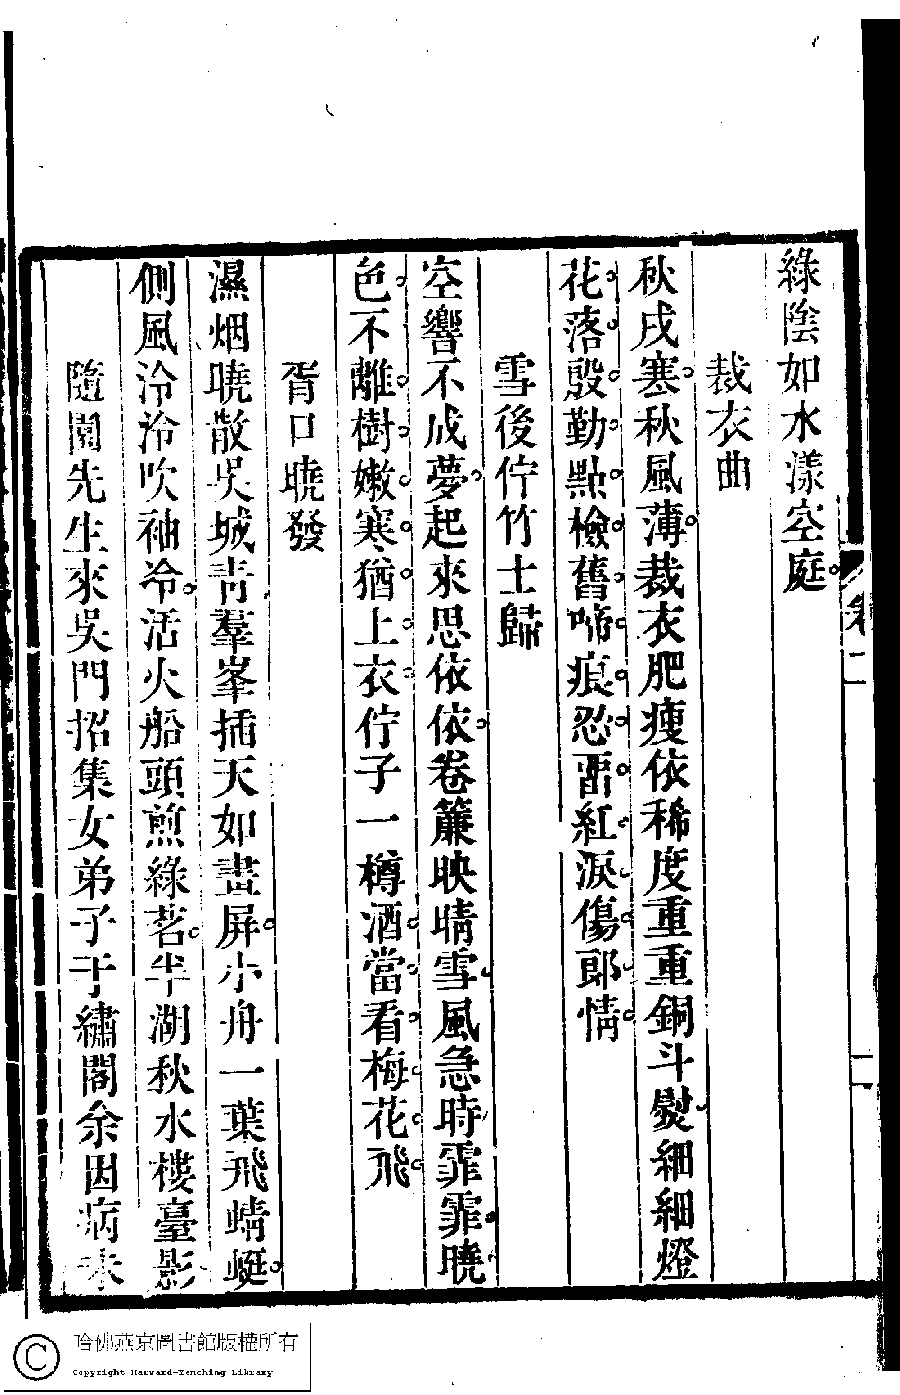 綠陰如水漾空庭
裁衣曲
秋戍寒秋風薄裁衣肥瘦依稀度重重銅斗熨細細燈
花落殷勤點檢舊啼痕忍畱紅淚傷郎情
雪後佇竹士歸
空響不成夢起來思依依卷簾映晴雪風急時霏霏曉
色不離樹嫩寒猶上衣佇子一樽酒當看梅花飛
胥口曉發
濕烟曉散吳城靑羣峯插天如畫屏小舟一葉飛蜻蜓
側風泠泠吹袖冷活火船頭煎綠茗半湖秋水樓臺影
隨園先生來吳門招集女弟子于繡閣余因病未
卷二
二
哈佛燕京圖書館版權所有
Copyright Harvard-Yenching Library